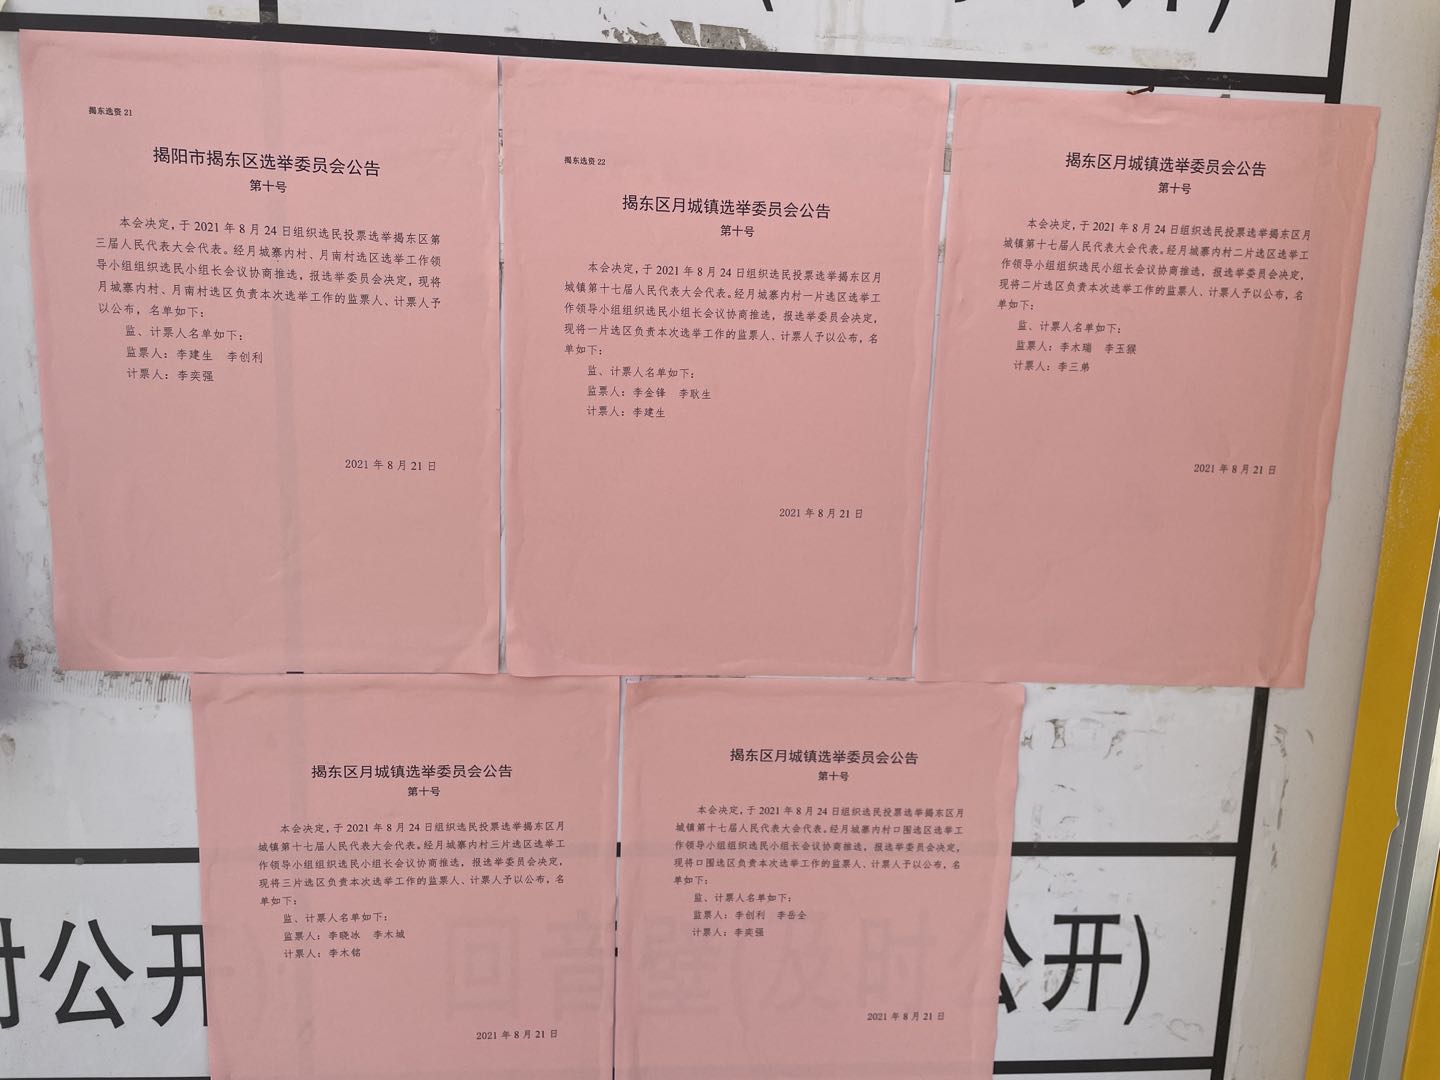 揭东选资 21
揭阳市揭东区选举委员会公告
第十号
本会决定，于 2021 年 8 月 24 日组织选民投票选举揭东区第
三届人民代表大会代表。经月城寨内村、月南村选区选举工作领
导小组组织选民小组长会议协商推选，报选举委员会决定，现将
月城寨内村、月南村选区负责本次选举工作的监票人、计票人予
以公布，名单如下：
监、计票人名单如下：
监票人：李建生 李创利
计票人：李奕强
2021 年 8 月 21 日
揭东选资 22
揭东区月城镇选举委员会公告
第十号
本会决定，于 2021 年 8 月 24 日组织选民投票选举揭东区月
城镇第十七届人民代表大会代表。经月城寨内村一片选区选举工
作领导小组组织选民小组长会议协商推选，报选举委员会决定，
现将一片选区负责本次选举工作的监票人、计票人予以公布，名
单如下：
监、计票人名单如下：
监票人：李金锋 李耿生
计票人：李建生
2021 年 8 月 21 日
揭东区月城镇选举委员会公告
第十号
本会决定，于 2021 年 8 月 24 日组织选民投票选举揭东区月
城镇第十七届人民代表大会代表。经月城寨内村二片选区选举工
作领导小组组织选民小组长会议协商推选，报选举委员会决定，
现将二片选区负责本次选举工作的监票人、计票人予以公布，名
单如下：
监、计票人名单如下：
监票人：李木瑞 李玉猴
计票人：李三弟
2021 年 8 月 21 日
揭东区月城镇选举委员会公告
第十号
本会决定，于 2021 年 8 月 24 日组织选民投票选举揭东区月
城镇第十七届人民代表大会代表。经月城寨内村三片选区选举工
作领导小组组织选民小组长会议协商推选，报选举委员会决定，
现将三片选区负责本次选举工作的监票人、计票人予以公布，名
单如下：
监、计票人名单如下：
监票人：李晓冰 李木城
计票人：李木铭
2021 年 8 月 21 日
揭东区月城镇选举委员会公告
第十号
本会决定，于 2021 年 8 月 24 日组织选民投票选举揭东区月
城镇第十七届人民代表大会代表。经月城寨内村口围选区选举工
作领导小组组织选民小组长会议协商推选，报选举委员会决定，
现将口围选区负责本次选举工作的监票人、计票人予以公布，名
单如下：
监、计票人名单如下：
监票人：李创利 李岳全
计票人：李奕强
2021 年 8 月 21 日
时公开)
回音壁(及时公开)